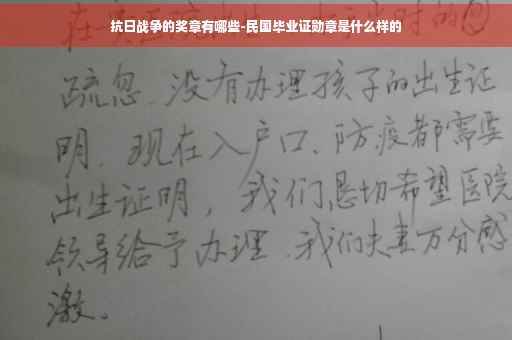 抗日战争的奖章有哪些-民国毕业证勋章是什么样的
疏忽、没有办理孩子的出生证
明、现在入户口、防疫都需要
出生证明，我们恳切希望医院
领导给予办理、我们夫妻万分感
激。